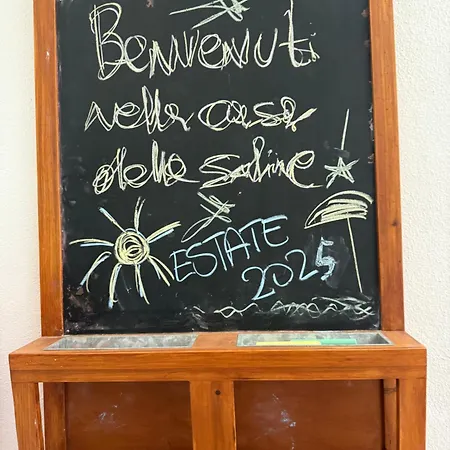 Benvenuti
nella casa
delle saline
ESTATE
2025